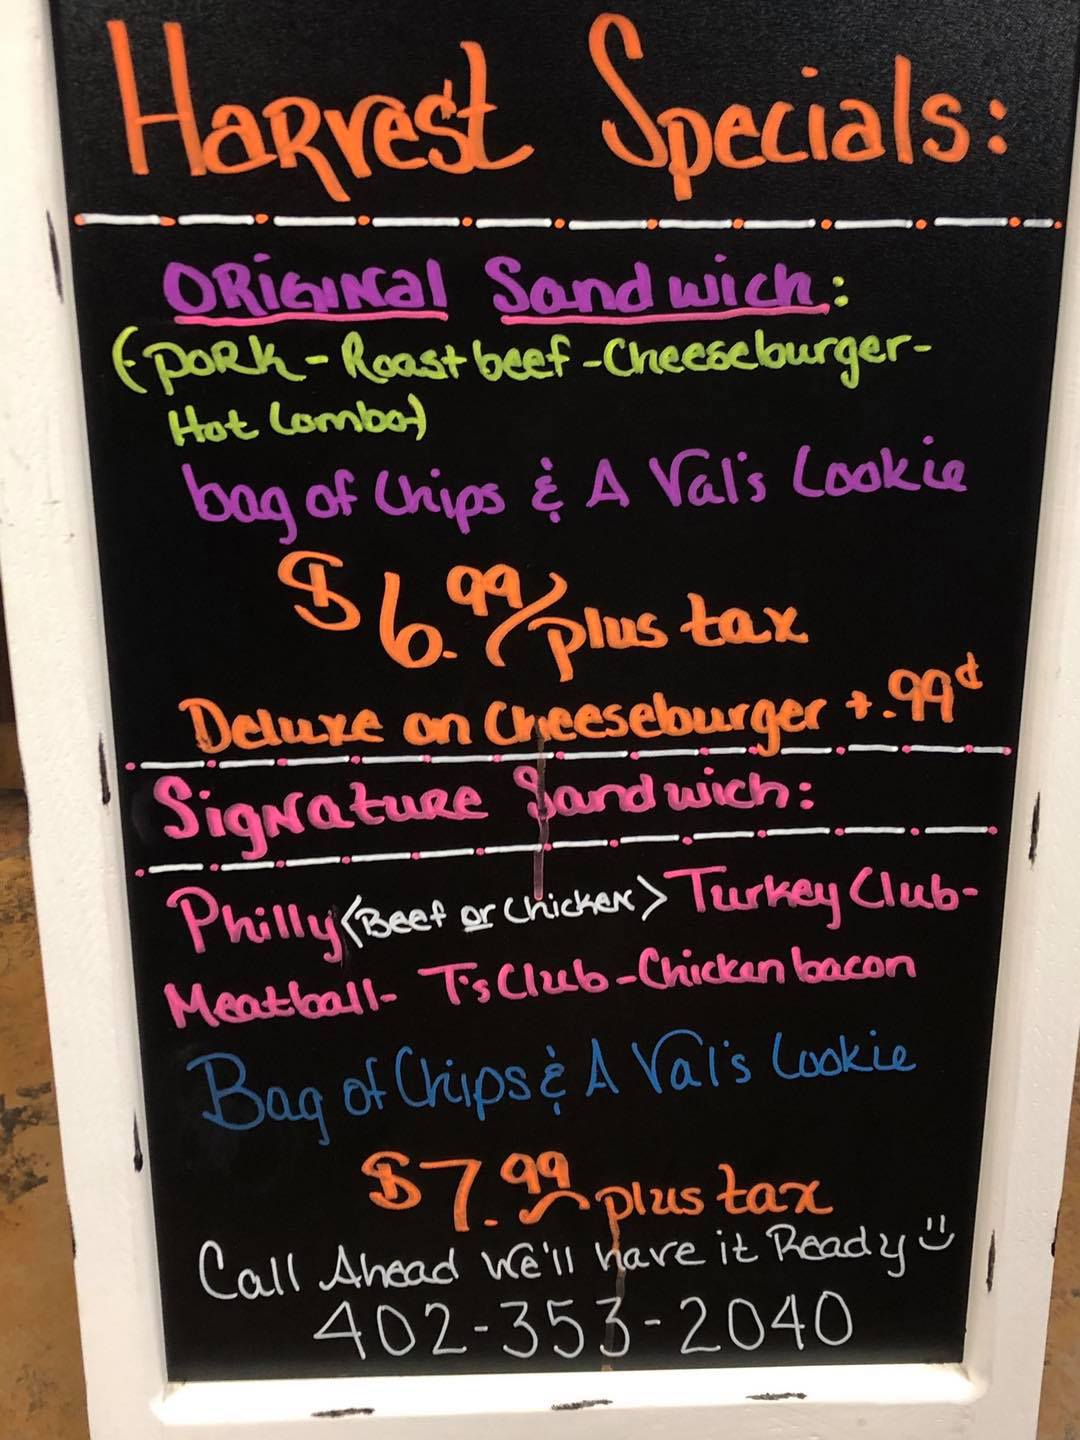 Harvest Specials:
Original Sandwich:
(pork - Roast beef - Cheeseburger -
Hot Combo)
bag of Chips & A Val's Cookie
$6.99/plus tax
Deluxe on Cheeseburger +.99¢
Signature Sandwich:
Philly <Beef or Chicken> Turkey Club-
Meatball- T's Club - Chicken bacon
Bag of Chips & A Val's Cookie
$7.99 plus tax
Call Ahead We'll have it Ready
402-353-2040